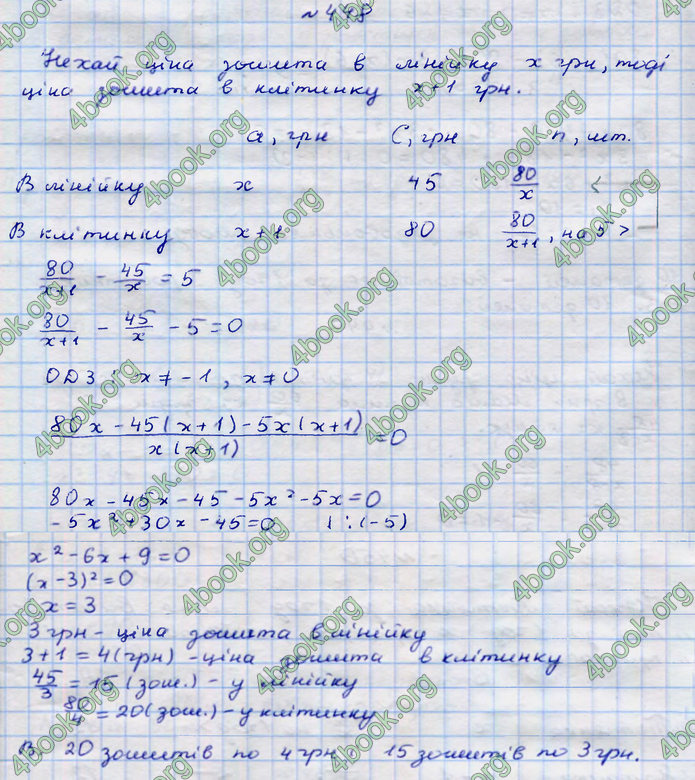 № 448
Нехай ціна зошита в лінійку x грн, тоді
ціна зошита в клітинку x+1 грн.
a, грн C, грн n, шт.
В лінійку x 45 80/x <
В клітинку x+1 80 80/(x+1), на 5 >
80/(x+1) - 45/x = 5
80/(x+1) - 45/x - 5 = 0
ОДЗ : x ≠ -1, x ≠ 0
(80x - 45(x+1) - 5x(x+1))/(x(x+1)) = 0
80x - 45x - 45 - 5x² - 5x = 0
-5x² + 30x - 45 = 0 | : (-5)
x² - 6x + 9 = 0
(x-3)² = 0
x = 3
3 грн - ціна зошита в лінійку
3+1 = 4 (грн) - ціна зошита в клітинку
45/3 = 15 (зош.) - у лінійку
80/4 = 20 (зош.) - у клітинку
В 20 зошитів по 4 грн 15 зошитів по 3 грн.
4book.org